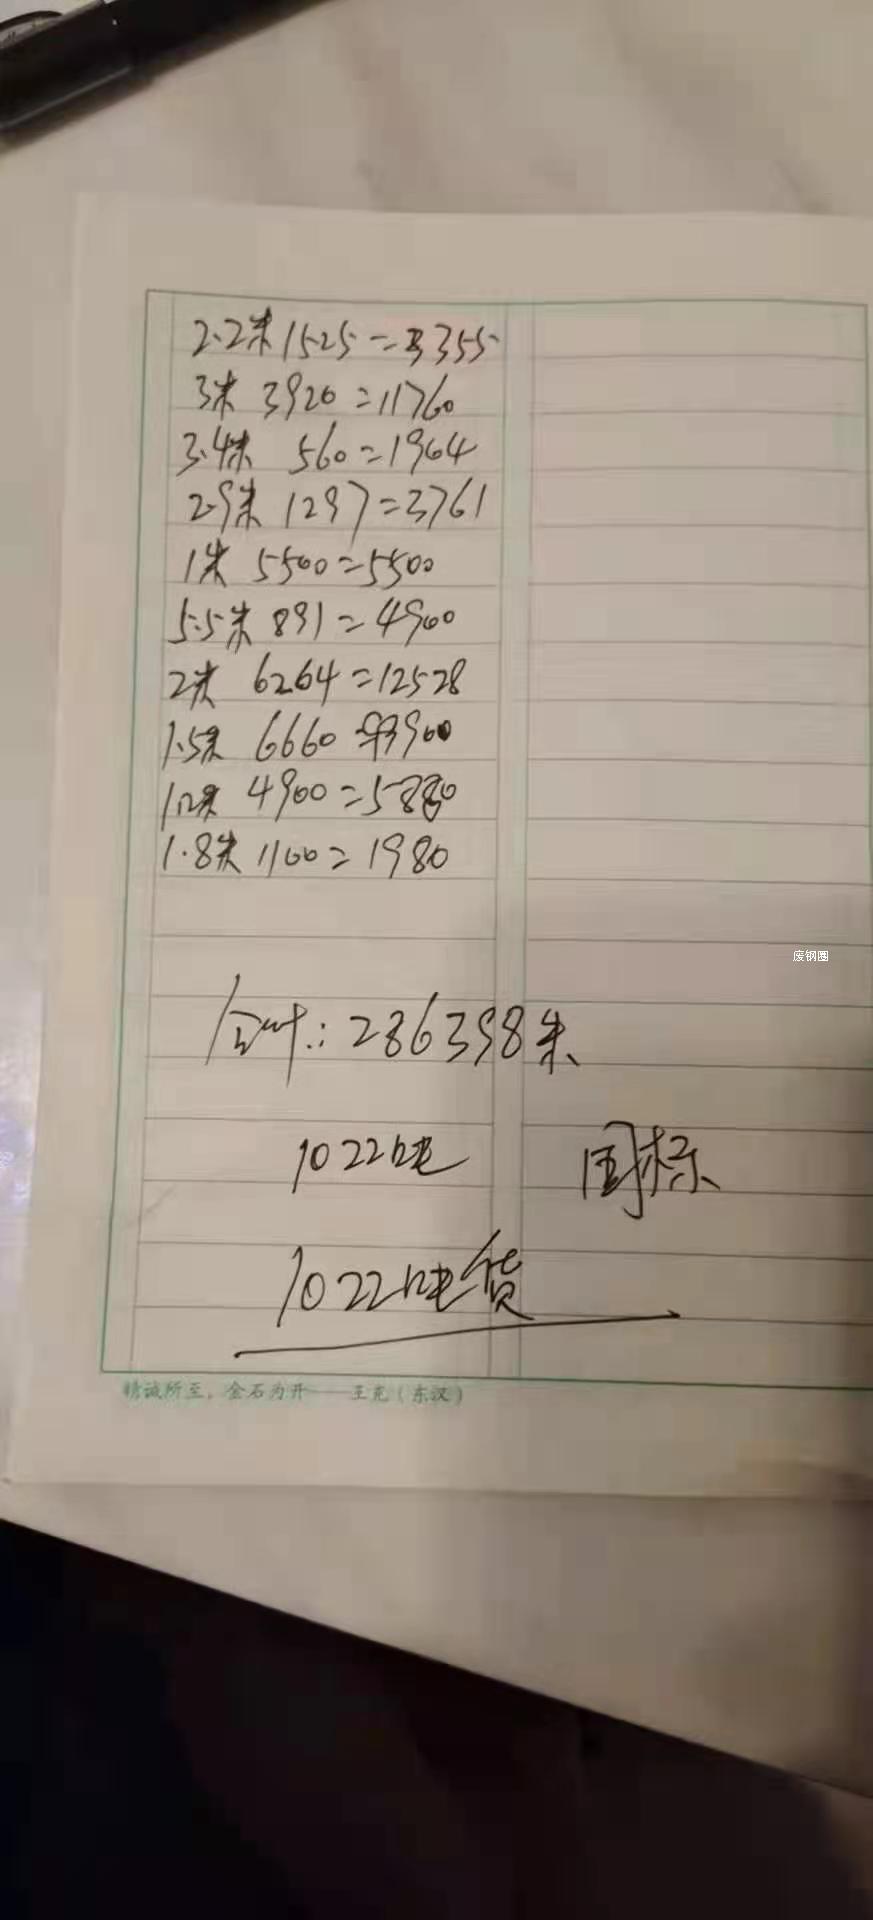 2.2米 1525=3355
3米 3920=11760
3.4米 560=1964
2.9米 1297=3761
1米 5500=5500
5.5米 891=4900
2米 6264=12528
1.5米 6660 9900
1.2米 4900=5880
1.8米 1100=1980
废钢圈
合计:286398米
1022吨 国标
1022吨货
精诚所至,金石为开——王充(东汉)